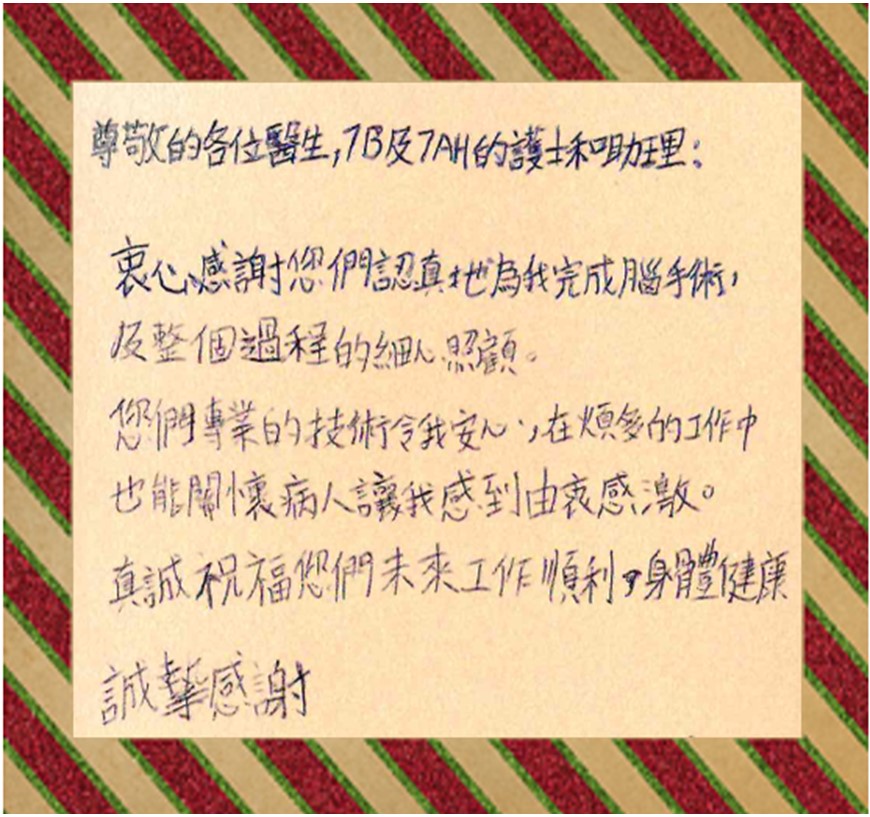 尊敬的各位醫生,7B及7AH的護士和助理:
衷心感謝您們認真地為我完成腦手術,
及整個過程的細心照顧。
您們專業的技術令我安心,在煩多的工作中
也能關懷病人讓我感到由衷感激。
真誠祝福您們未來工作順利,身體健康
誠摯感謝